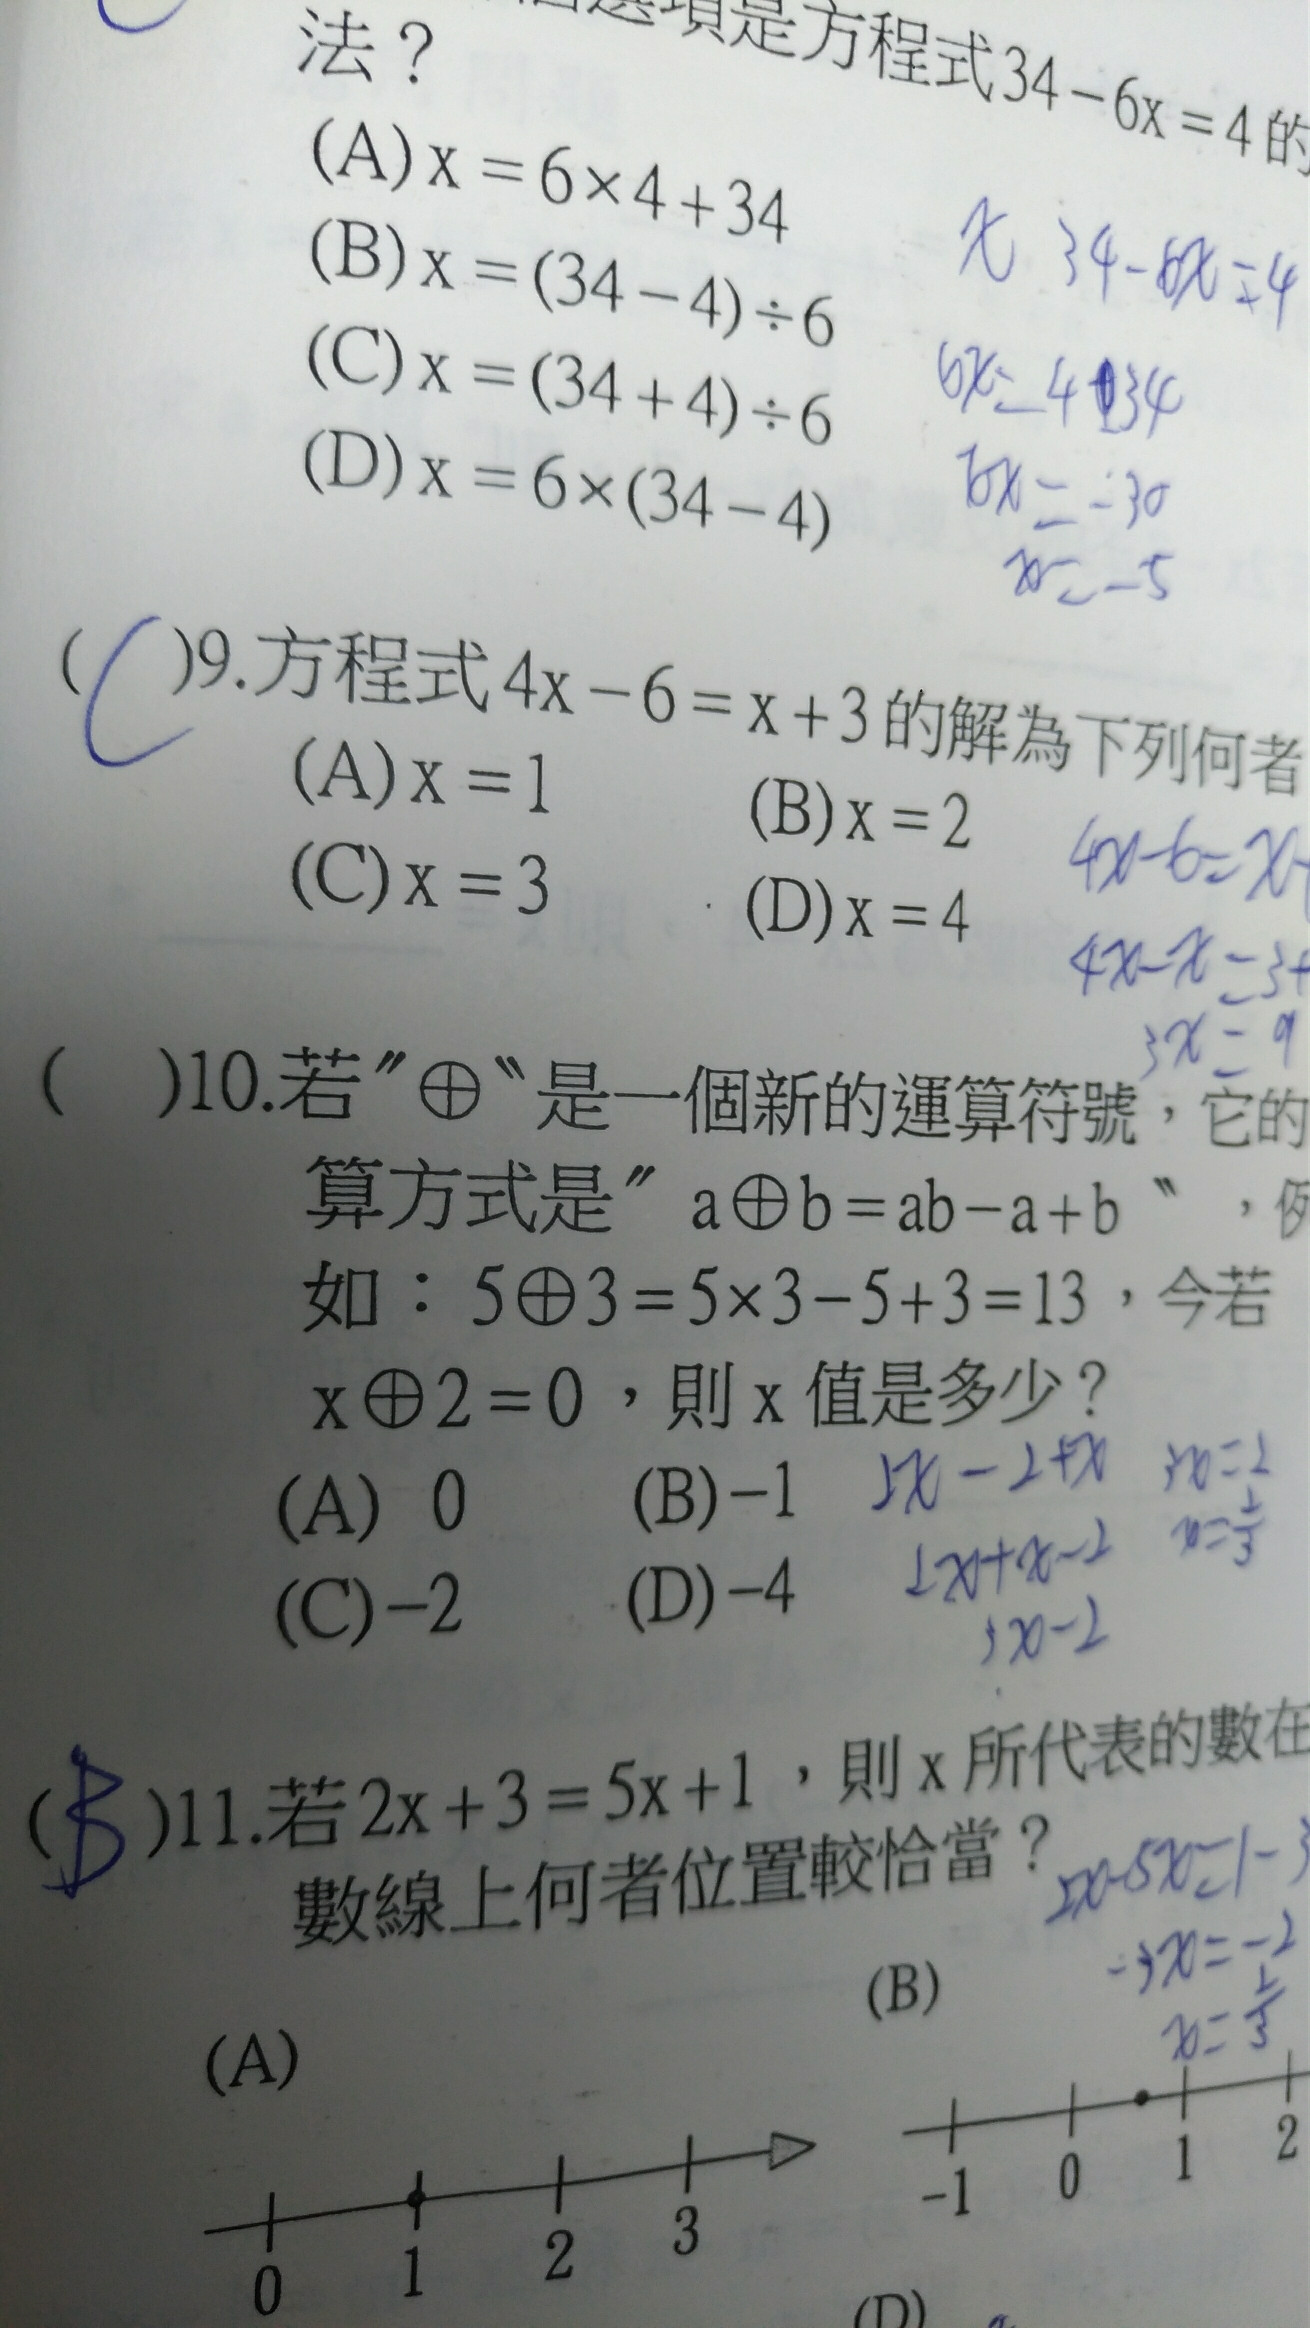 選項是方程式34-6x=4的
法?
(A)x=6×4+34
(B)x=(34-4)÷6
(C)x=(34+4)÷6
(D)x=6×(34-4)
x 34-6x=4
6x=4-34
6x=-30
x=-5
(C)9.方程式4x-6=x+3的解為下列何者
(A)x=1 (B)x=2
(C)x=3 (D)x=4
4x-6=x+
4x-x=3+
3x=9
( )10.若〞⊕〝是一個新的運算符號,它的
算方式是〞a⊕b=ab-a+b〝,例
如:5⊕3=5×3-5+3=13,今若
x⊕2=0,則x值是多少?
(A) 0 (B)-1
(C)-2 (D)-4
2x-2+x 3x=2
2x+x-2
3x-2
(B)11.若2x+3=5x+1,則x所代表的數在
數線上何者位置較恰當?
2x-5x=1-3
-3x=-2
x=2/3
(A) (B)
0 1 2 3
-1 0 1 2
(D)